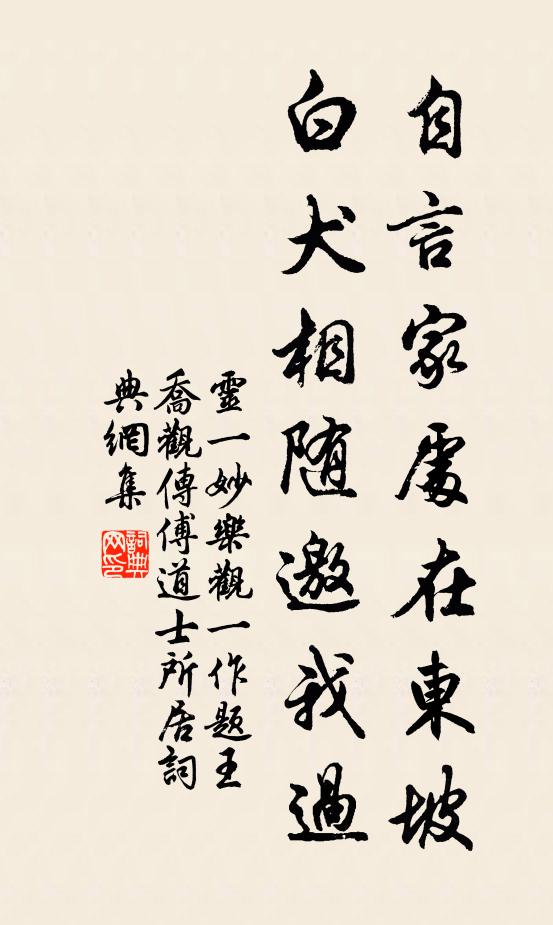 自言家處在東坡
白犬相隨邀我過
靈一妙樂觀一作題王
喬觀傳傅道士所居詞
典網集
詞典
网印